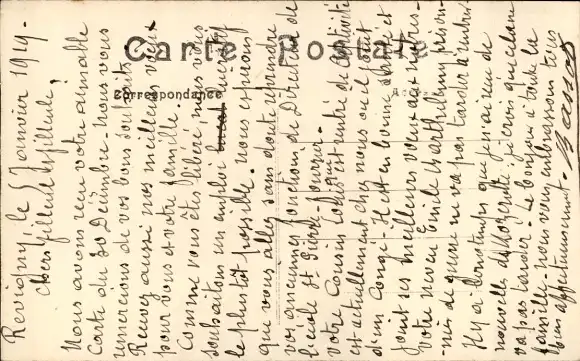 Carte Postale
Correspondance
Revigny le 5 Janvier 1919.
Chers filleule et filleul,
Nous avons reçu votre aimable
Carte du 30 Décembre. Nous vous
remercions de vos bons souhaits
Recevez aussi nos meilleurs vœux
pour vous et votre famille.
Comme vous êtes libéré nous vous
souhaitons un emploi lucratif
le plus tôt possible. nous espérons
que vous allez sans doute reprendre
vos anciennes fonctions de Directeur de
l'école St Pierre
votre Cousin est rentré de Captivité
est actuellement chez nous où il jouit
d'un Congé. Il est en bonne santé et
joint ses meilleurs vœux aux nôtres.
Votre neveu Emile Barthélemy prison-
nier de guerre ne va pas tarder à rentrer
Il y a longtemps que je n'ai reçu de
nouvelle de Marguerite. je crois que cela ne
va pas tarder. Le bonjour à toute la
famille nous vous embrassons tous
bien affectueusement.